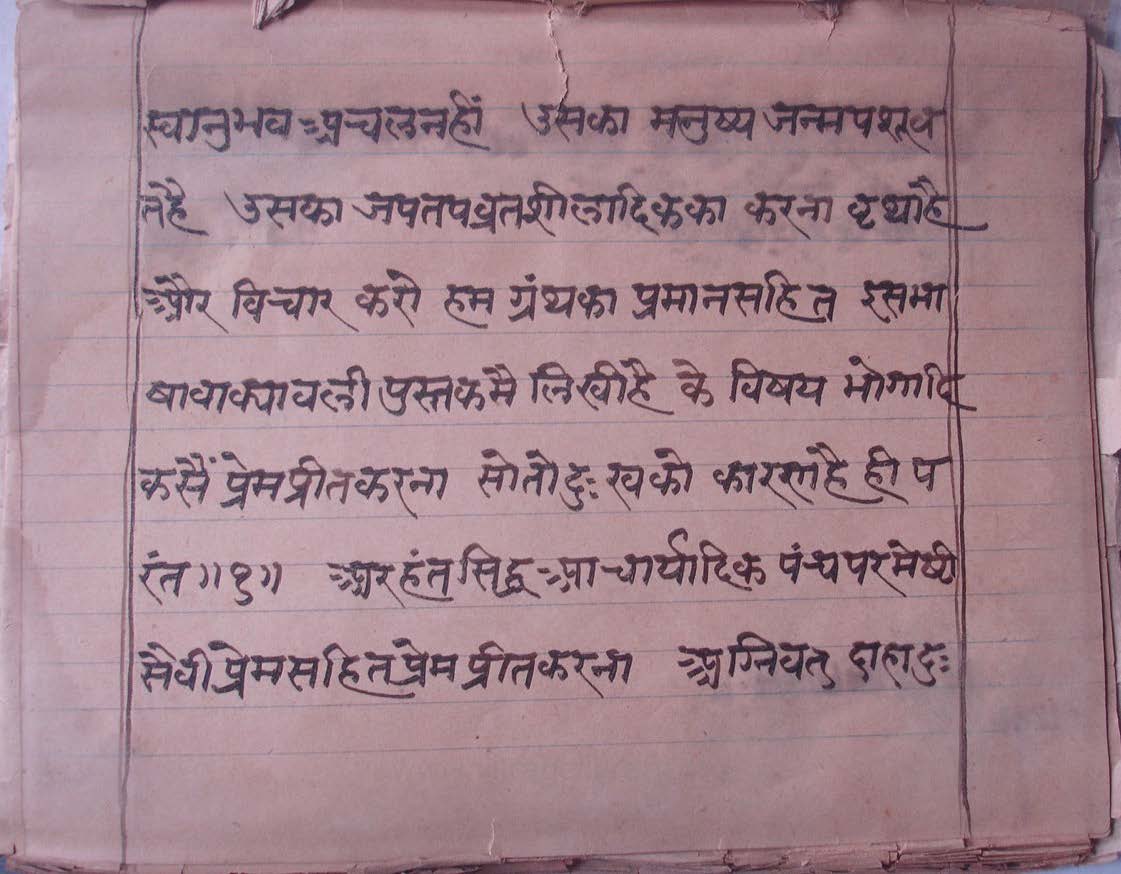 स्वानुभव अचलनहीं उसका मनुष्य जन्मपशूव
तहै उसका जपतपव्रतशीलादिकका करना वृथाहै
और विचार करो हम ग्रंथका प्रमानसहित इसभा
षावाक्यावली पुस्तकमै लिखीहै के विषय भोगादि
कसैं प्रेमप्रीतकरना सोतोदुःखको कारणहै ही प
रंत॥१॥ अरहंतसिद्धआचार्यादिक पंचपरमेष्ठी
सैवीप्रेमसहितप्रेमप्रीतकरना अग्निवत् दाहादुः